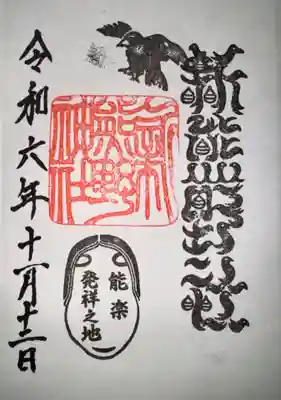 新熊野神社
新熊野神社
能楽
発祥之地
令和六年十一月十二日